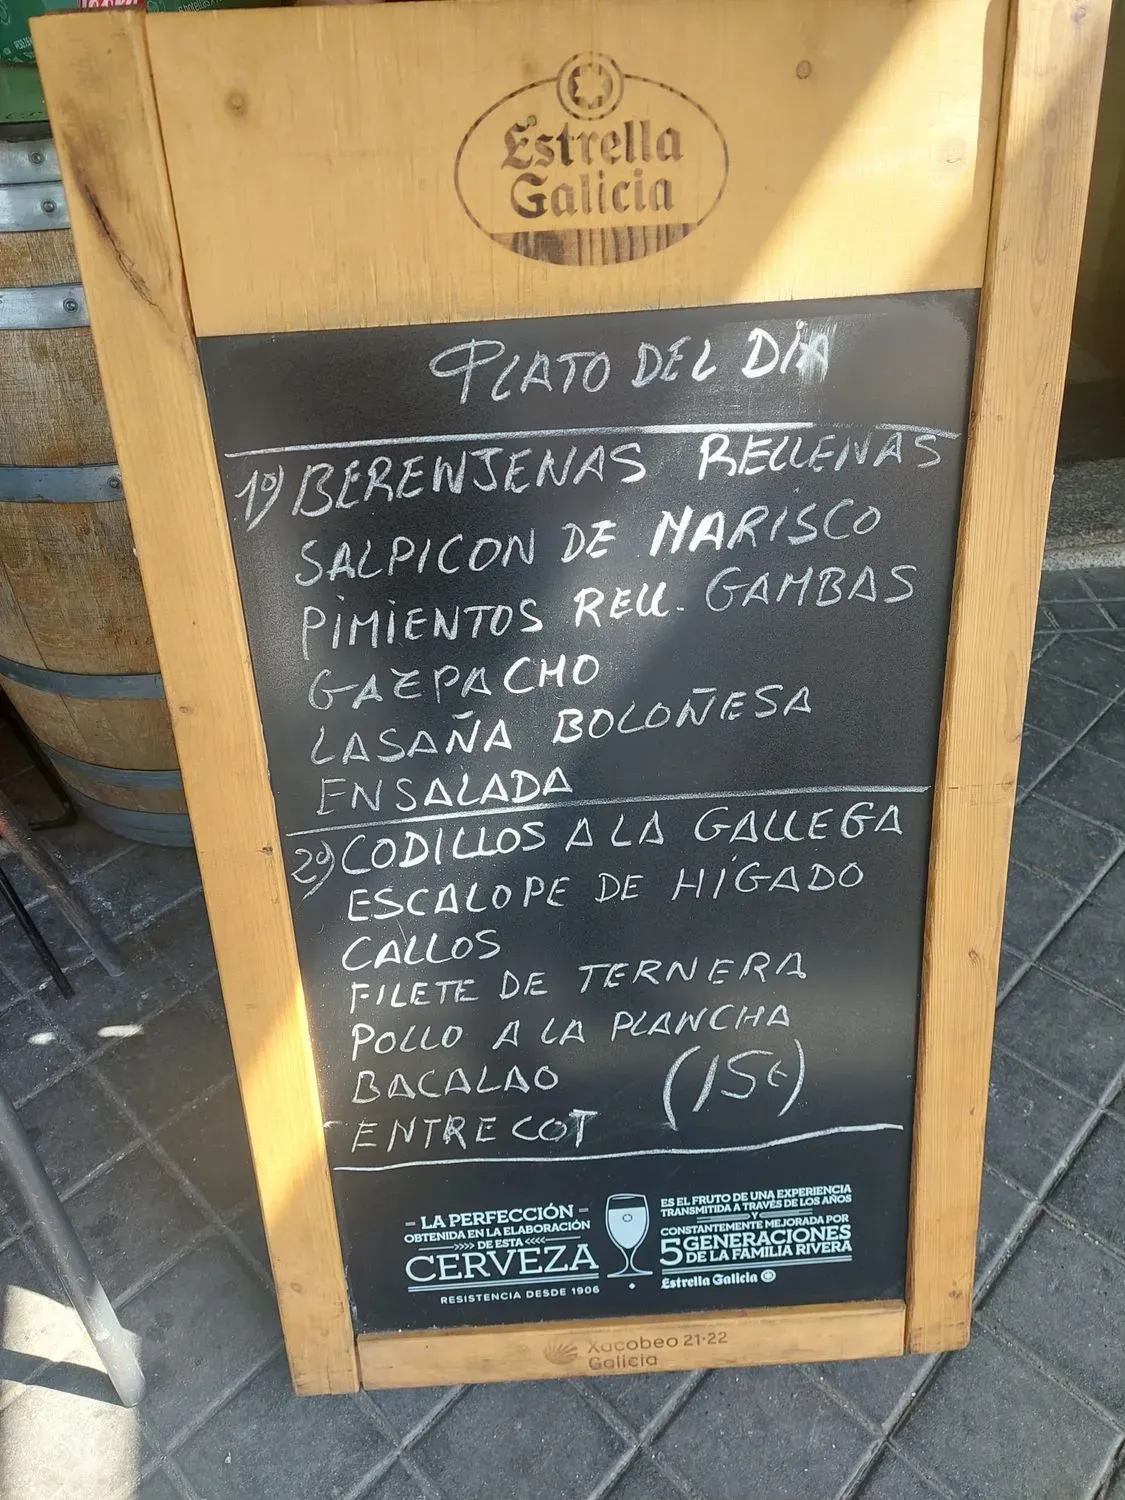 Estrella
Galicia
PLATO DEL DÍA
1º) BERENJENAS RELLENAS
SALPICON DE MARISCO
PIMIENTOS RELL. GAMBAS
GAZPACHO
LASAÑA BOLOÑESA
ENSALADA
2º) CODILLOS A LA GALLEGA
ESCALOPE DE HÍGADO
CALLOS
FILETE DE TERNERA
POLLO A LA PLANCHA
BACALAO
(15€)
ENTRECOT
LA PERFECCIÓN
OBTENIDA EN LA ELABORACIÓN
DE ESTA
CERVEZA
RESISTENCIA DESDE 1906
ES EL FRUTO DE UNA EXPERIENCIA
TRANSMITIDA A TRAVÉS DE LOS AÑOS
Y
CONSTANTEMENTE MEJORADA POR
5 GENERACIONES
DE LA FAMILIA RIVERA
Estrella Galicia
Xacobeo 21·22
Galicia